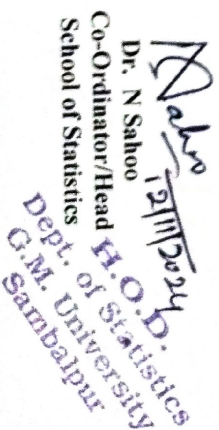 N Sahoo
12/11/2024
Dr. N Sahoo
Co-Ordinator/Head
School of Statistics
H.O.D.
Dept. of Statistics
G.M. University
Sambalpur